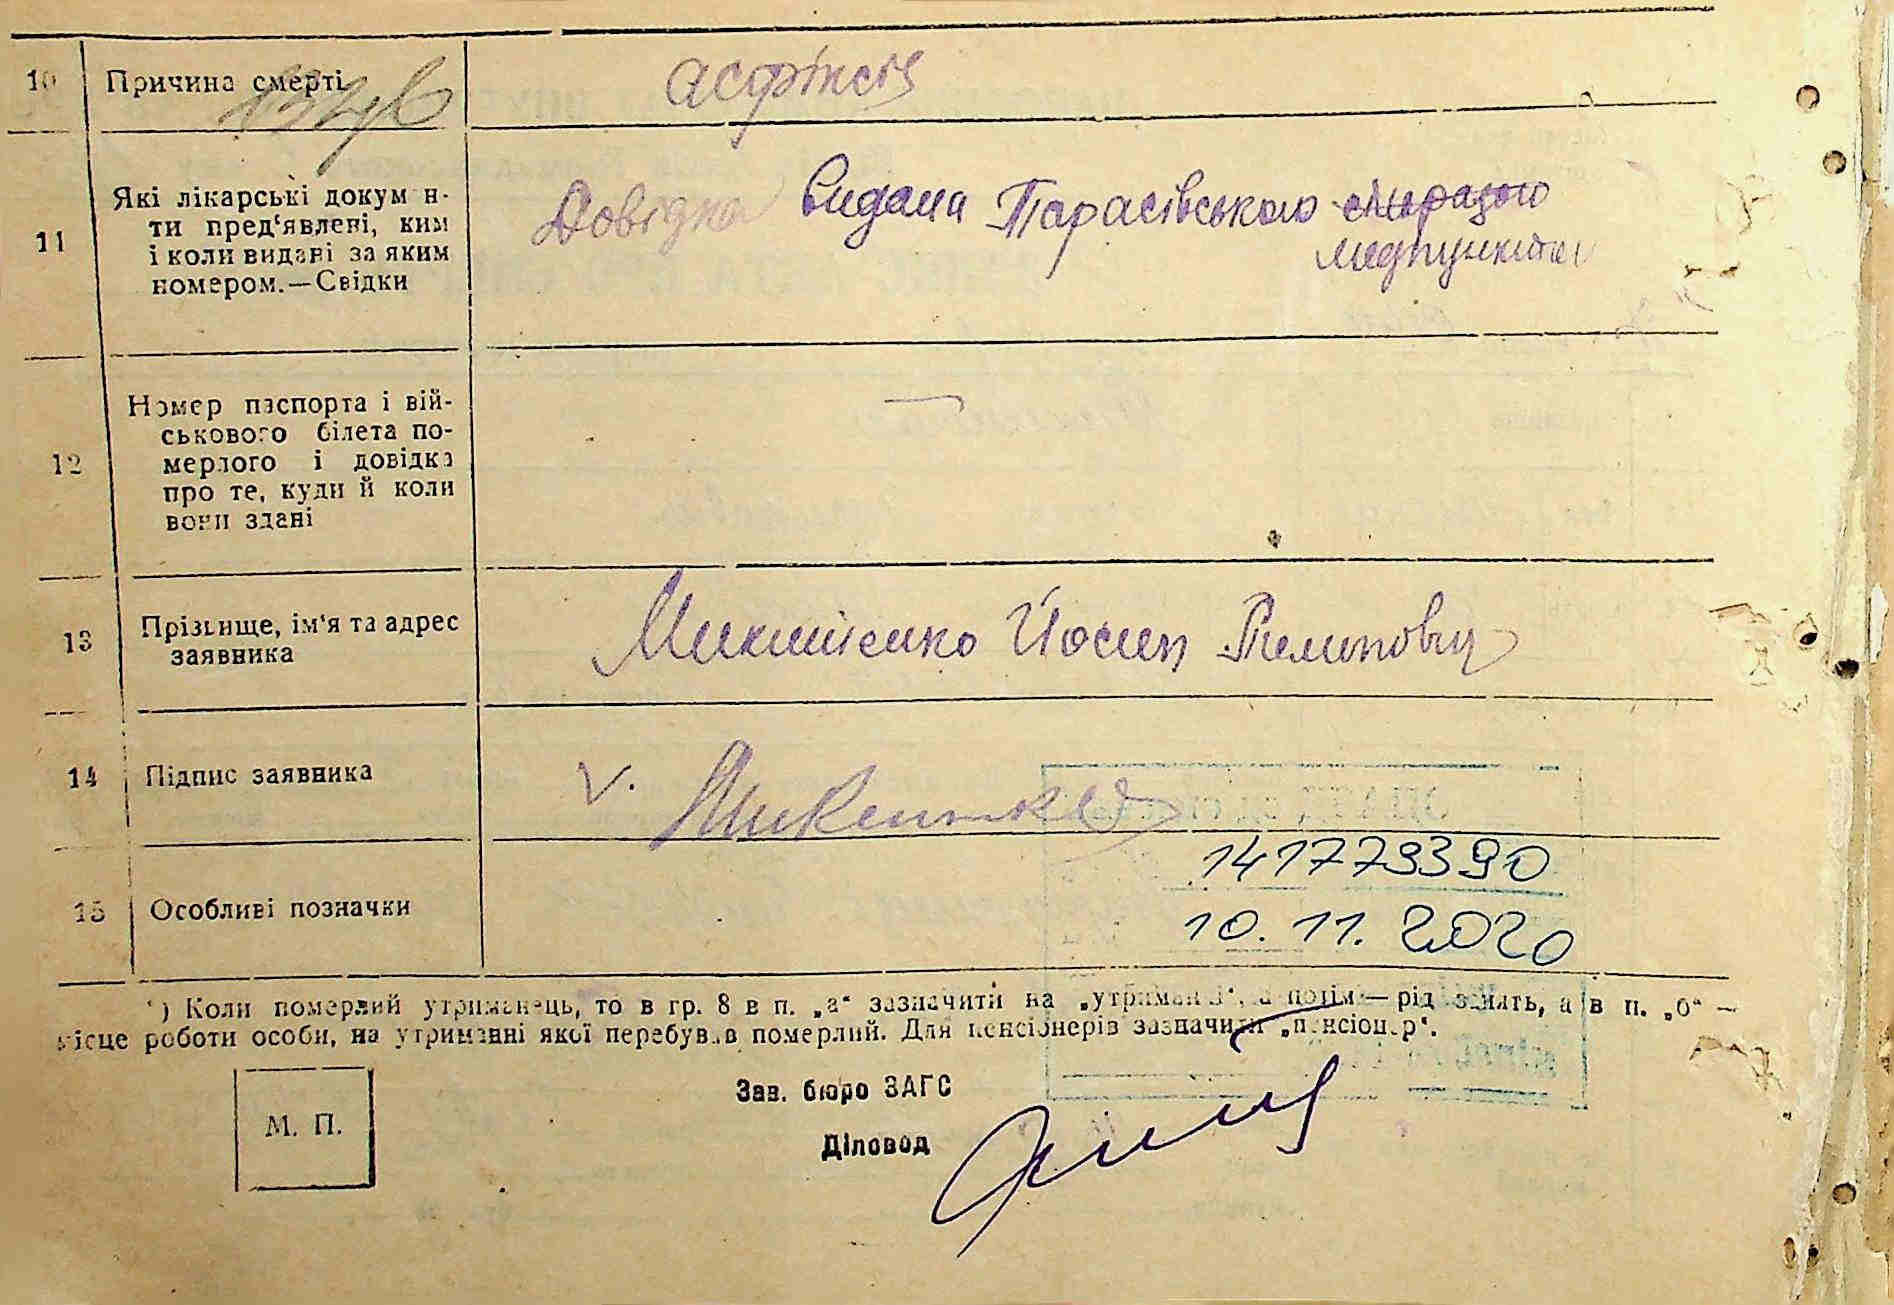 10 Причина смерті асфіксія
11 Які лікарські докум н-
ти пред'явлені, ким
і коли видані за яким
номером.—Свідки
Довідка видана Тарасівського
медпункта
12 Номер паспорта і вій-
ськового білета по-
мерлого і довідка
про те, куди й коли
вони здані
—
13 Прізвище, ім'я та адрес
заявника
Йосип
14 Підпис заявника
V.
141779390
15 Особливі позначки
10.11.2020
*) Коли померлий утриманець, то в гр. 8 в п. „а“ зазначити на „утриманні“, а потім — рід занять, а в п. „б“ —
місце роботи особи, на утриманні якої перебував померлий. Для пенсіонерів зазначити „пенсіонер“.
Зав. бюро ЗАГС
М. П.
Діловод